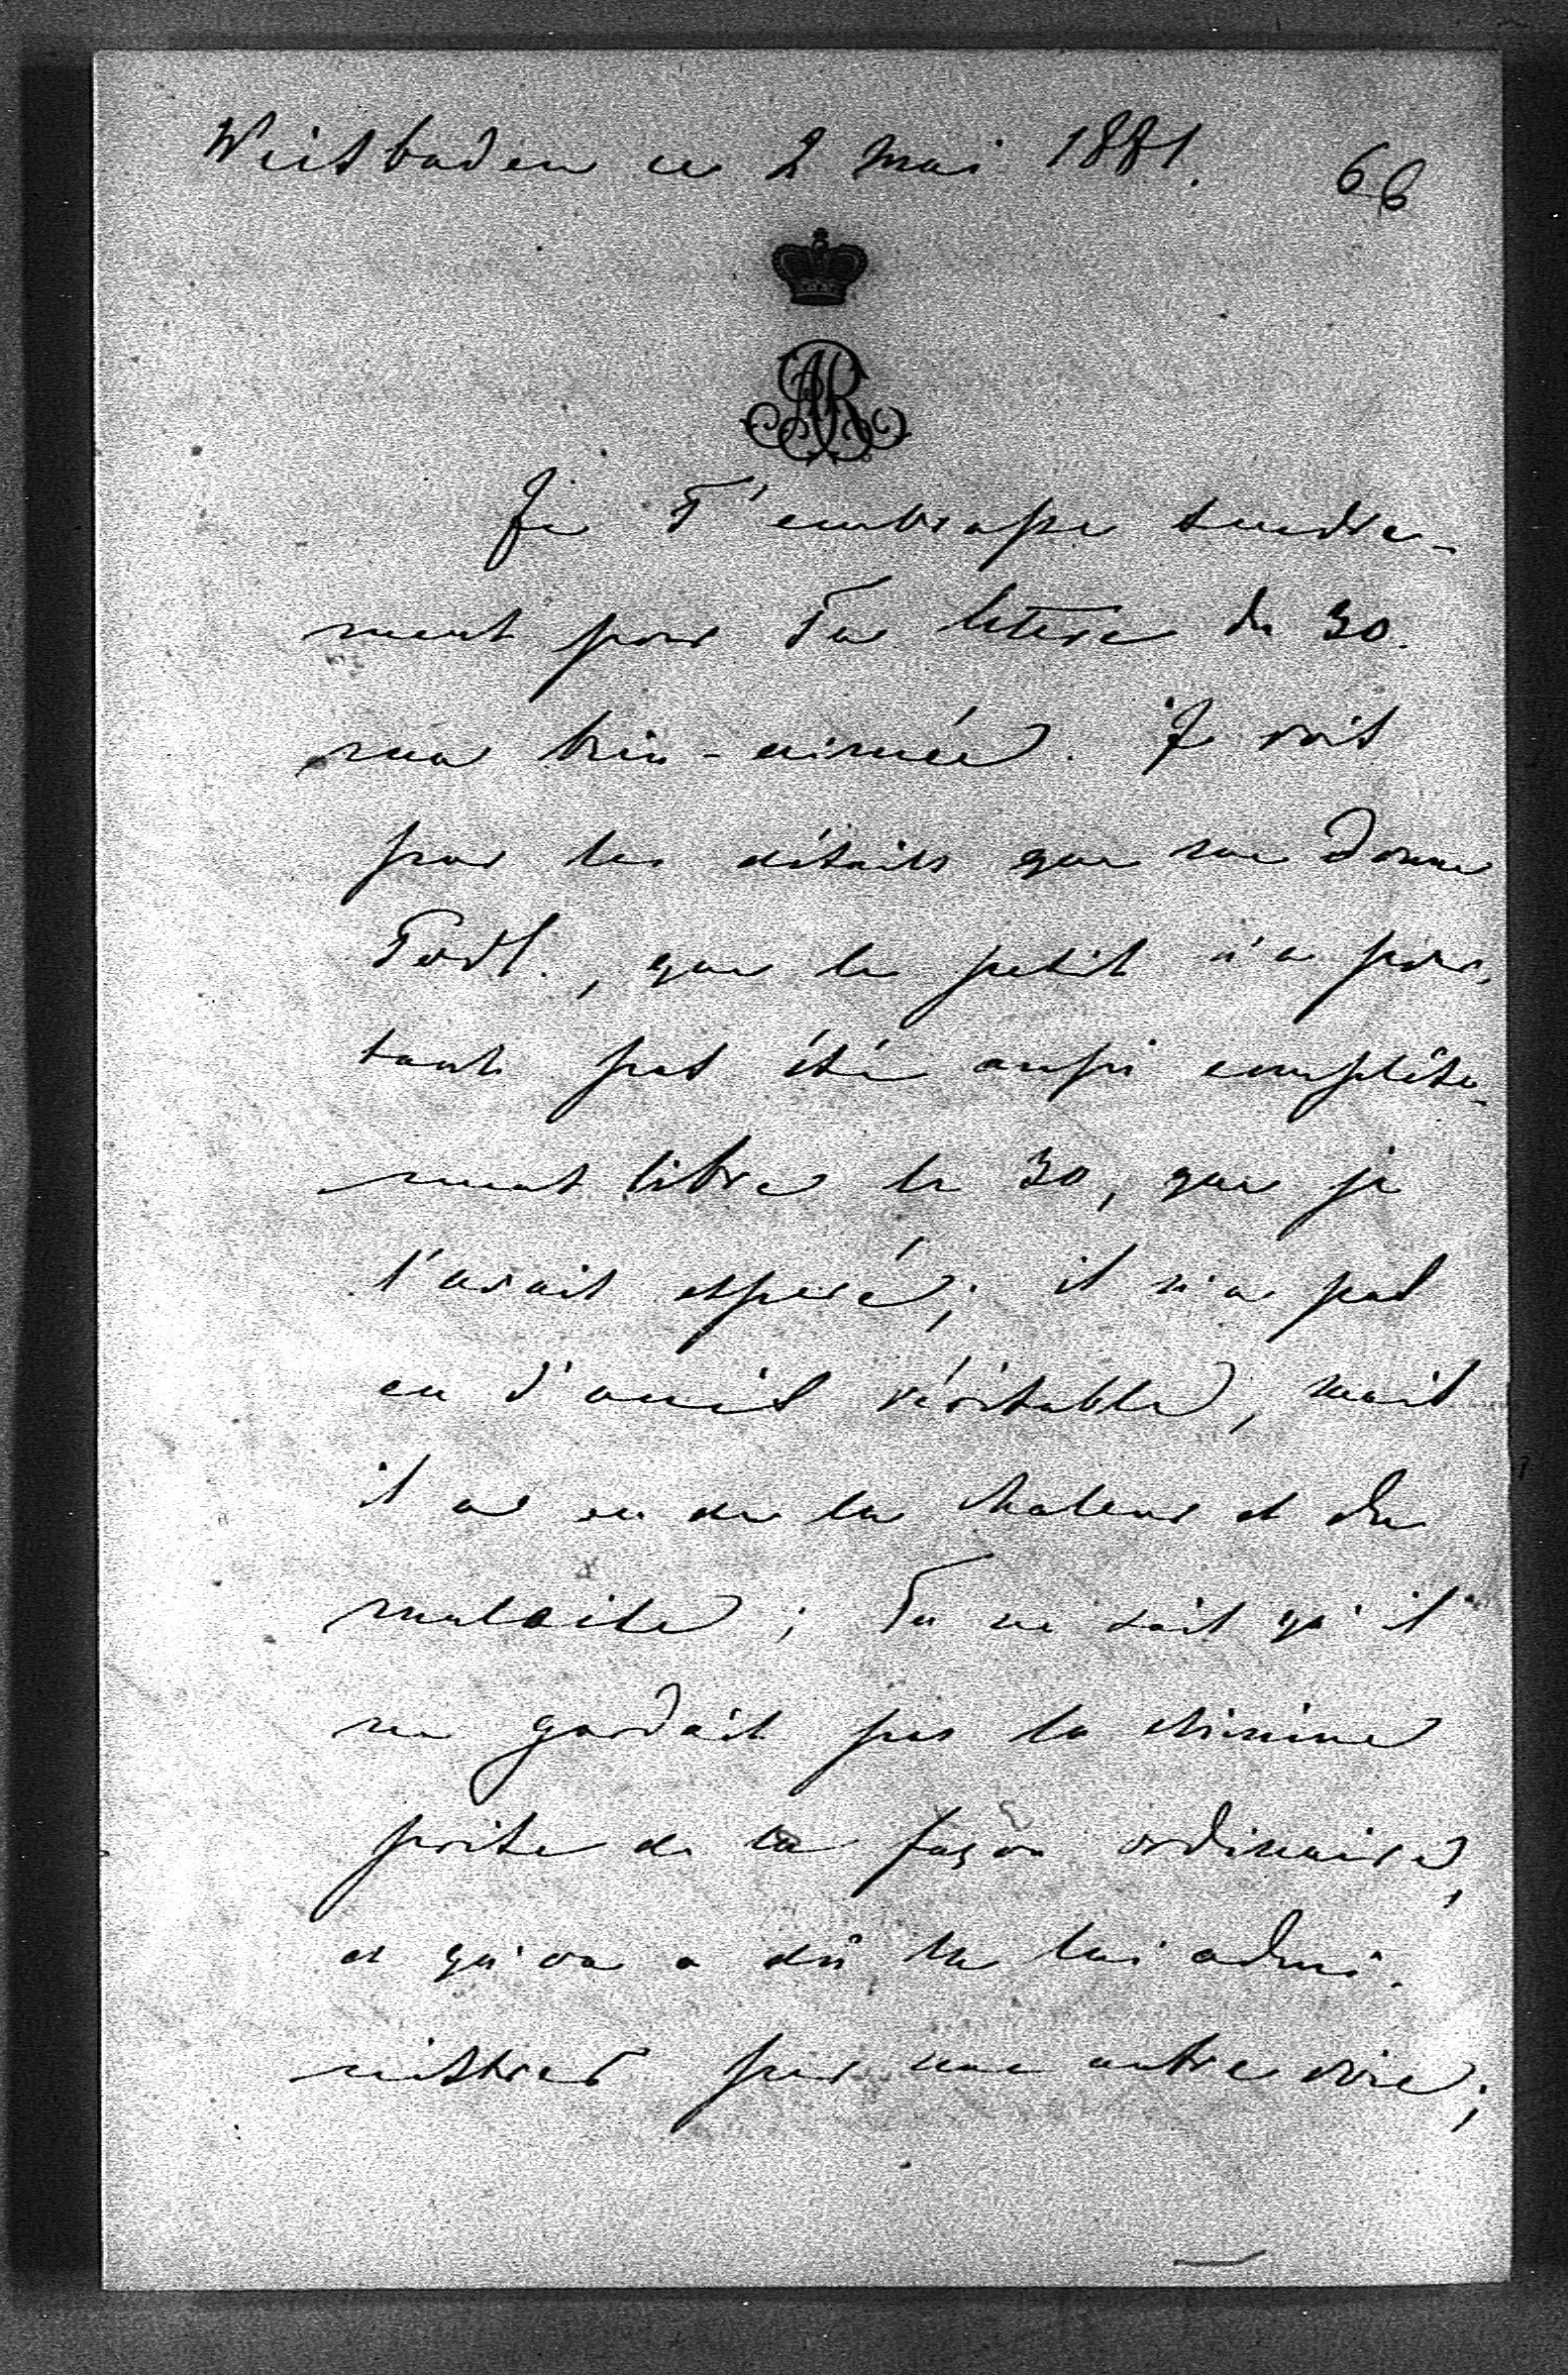 Wiesbaden ce 2 Mai 1881. 66
AR
Je T'embrasse tendre-
ment pour Ta lettre du 30.
ma bien-aimée. Je vois
par les détails que me donne
que le petit n'a pour-
tant pas été aussi complète-
ment libre le 30, que je
l'avais esperé; il n'a pas
eu d'accès véritable, mais
il a eu de la chaleur et du
malaise; Tu me dis qu'il
ne gardait pas la chinine
prise de la façon ordinaire,
et qu'on a dû la lui admi-
nistrer par une autre voie;